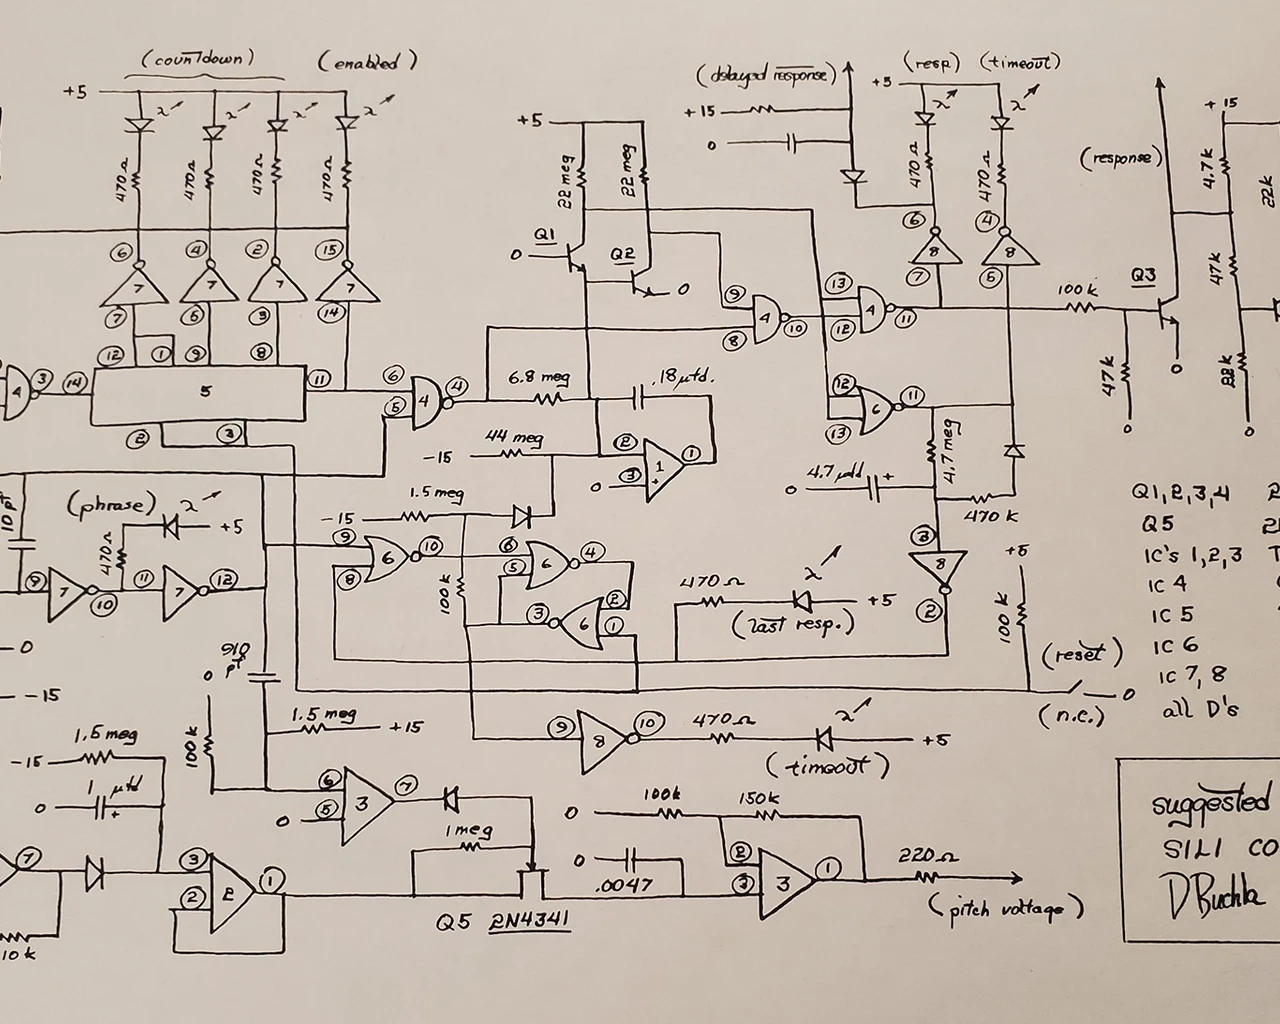 (countdown) (enabled)
+5
470Ω 470Ω 470Ω 470Ω
6 4 2 15
7 7 7 7
7 5 3 14
12 1 9 8
4 3 14 5 11
2 3
6 5 4 4
+5
22 meg 22 meg
Q1 Q2
0 0
(delayed response) (resp) (timeout)
+15 +5
0
470Ω 470Ω
6 4
8 8
7 5
9 8 4 10
13 12 4 11
12 13 6 11
(response)
+15
4.7k
22k
47k
Q3
100k
47k 0
22k
0 0
6.8 meg .18 μfd.
44 meg
-15
2 3 1 1
0 +
1.5 meg
-15
9 8 6 10
6 5 6 4
3 6 2 1
100k
4.7 meg
4.7 μfd
0 +
470 k
3 8 2
10 pf
(phrase)
+5
470Ω
9 7 10 11 7 12
0
-15
910 pf
0
100k
1.5 meg +15
470Ω +5
(last resp.)
+5
100k
(reset)
0
(n.c.)
9 8 10 470Ω +5
(timeout)
1.5 meg
-15
1 μfd
0 +
7
10k
3 2 2 1
6 5 3 7
0
1 meg
Q5 2N4341
0 100k 150k
0 .0047
2 3 3 1
220Ω
(pitch voltage)
Q1,2,3,4
Q5
IC's 1,2,3
IC 4
IC 5
IC 6
IC 7, 8
all D's
suggested
SILI CO
D Buchla